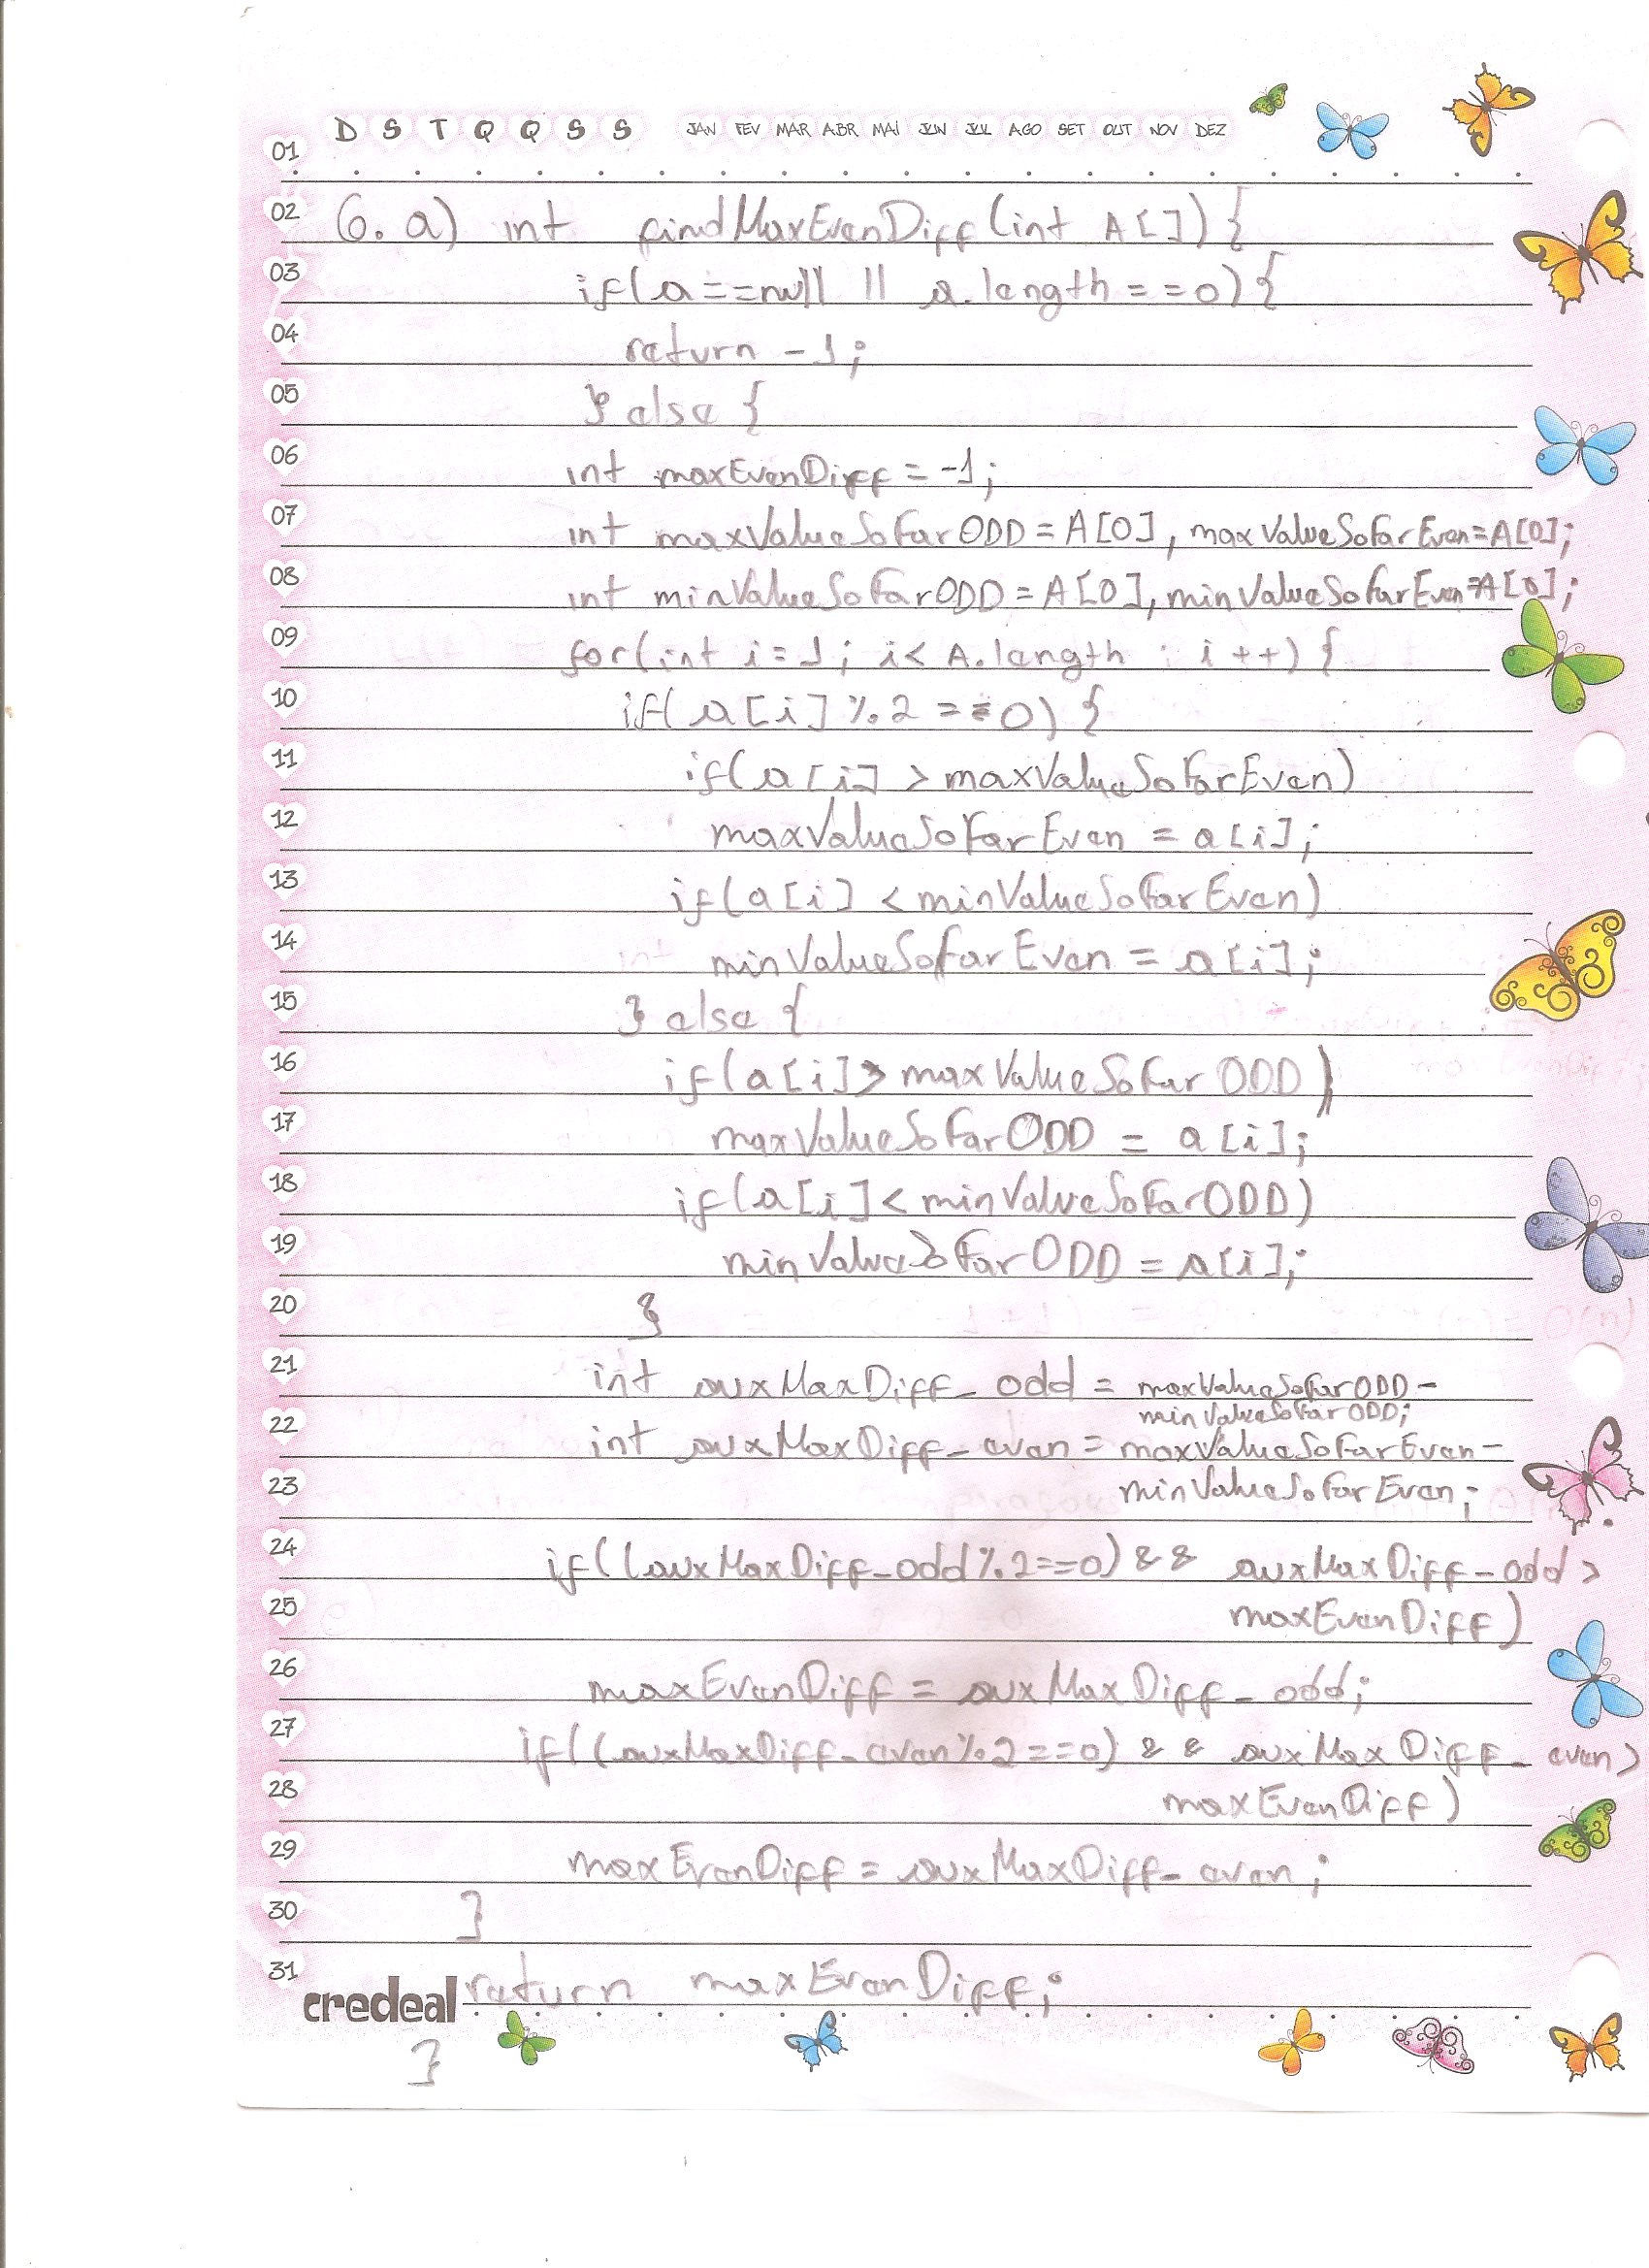 D S T Q Q S S JAN FEV MAR ABR MAI JUN JUL AGO SET OUT NOV DEZ
01
02 6. a) int findMaxEvenDiff(int A[]) {
03 if(a==null || a.length==0) {
04 return -1;
05 } else {
06 int maxEvenDiff = -1;
07 int maxValueSoFarODD = A[0], maxValueSoFarEven=A[0];
08 int minValueSoFarODD = A[0], minValueSoFarEven=A[0];
09 for(int i=1; i< A.length ; i++) {
10 if(a[i] %2 ==0) {
11 if(a[i] > maxValueSoFarEven)
12 maxValueSoFarEven = a[i];
13 if(a[i] < minValueSoFarEven)
14 minValueSoFarEven = a[i];
15 } else {
16 if(a[i]> maxValueSoFarODD)
17 maxValueSoFarODD = a[i];
18 if(a[i]< minValueSoFarODD)
19 minValueSoFarODD = a[i];
20 }
21 int auxMaxDiff_odd = maxValueSoFarODD-
minValueSoFarODD;
22 int auxMaxDiff_even = maxValueSoFarEven-
23 minValueSoFarEven;
24 if((auxMaxDiff_odd%2==0) && auxMaxDiff_odd >
25 maxEvenDiff)
26 maxEvenDiff = auxMaxDiff_odd;
27 if((auxMaxDiff_even%2==0) && auxMaxDiff_even>
28 maxEvenDiff)
29 maxEvenDiff = auxMaxDiff_even;
30 }
31 return maxEvenDiff;
credeal
}